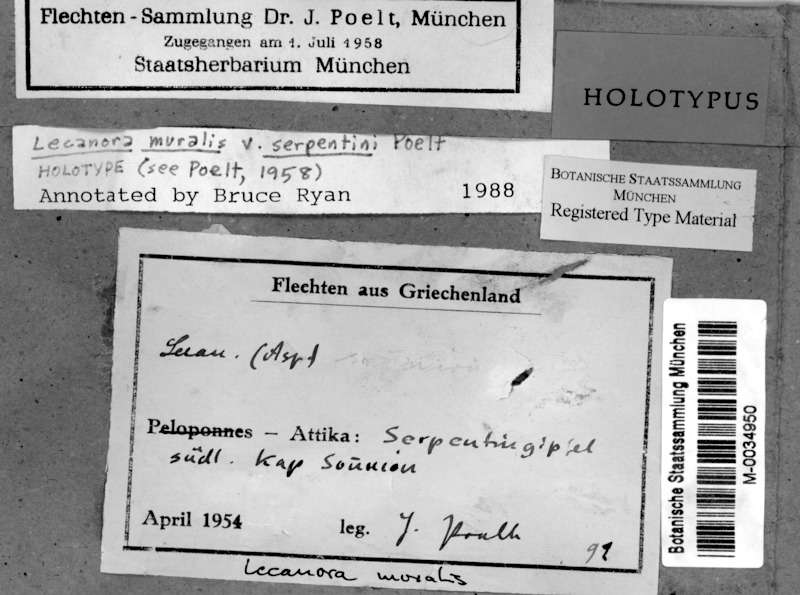 Flechten-Sammlung Dr. J. Poelt, München
Zugegangen am 1. Juli 1958
Staatsherbarium München
HOLOTYPUS
Lecanora muralis v. serpentini Poelt
HOLOTYPE (see Poelt, 1958)
Annotated by Bruce Ryan 1988
BOTANISCHE STAATSSAMMLUNG
MÜNCHEN
Registered Type Material
Flechten aus Griechenland
Lecan. (Asp)
Peloponnes - Attika: Serpentingipfel
südl. Kap Soúnion
April 1954 leg. J. Poelt
91
Lecanora muralis
Botanische Staatssammlung München
M-0034950